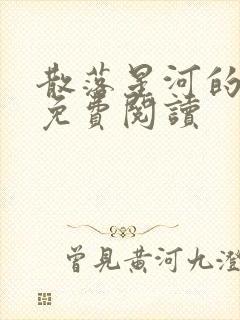 散落星河的
免費閱讀
曾見黃河九澄